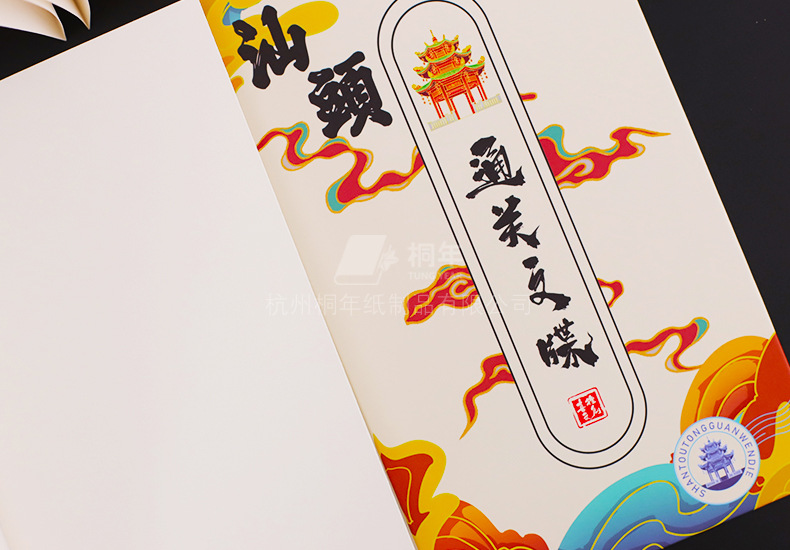 汕頭
通关文牒
桐年
TUNGNEAN
杭州桐年纸制品有限公司
SHANTOUTONGGUANWENDIE